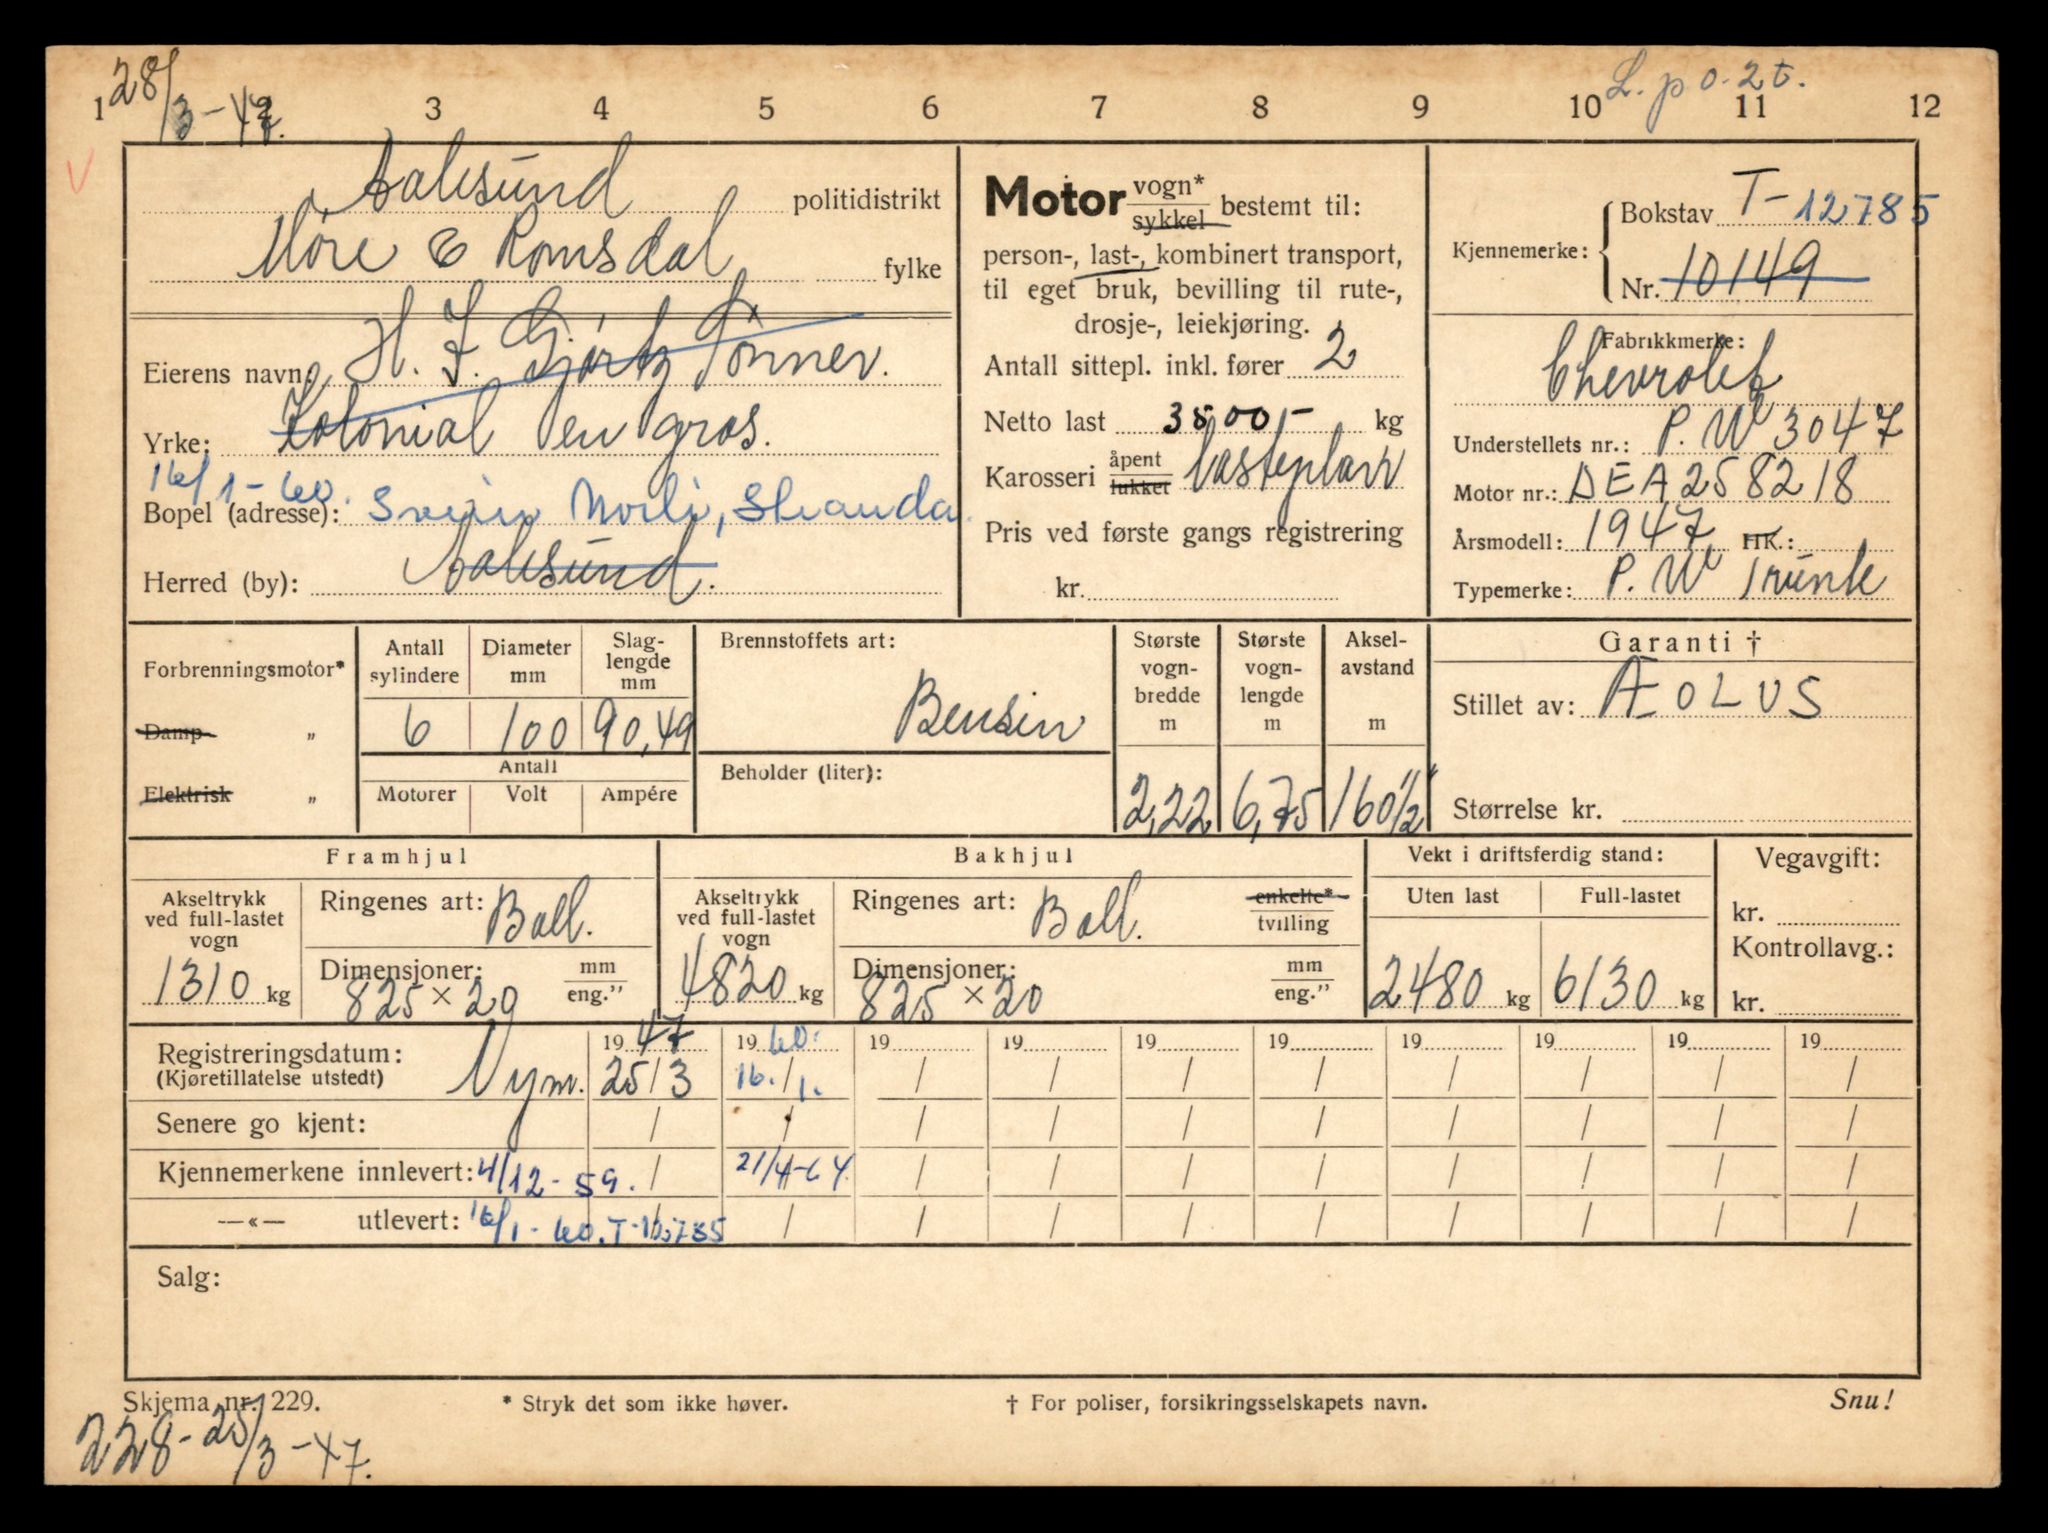 28/3-47.
L. p 0-2t.
1 2 3 4 5 6 7 8 9 10 11 12
V
Aalesund politidistrikt
Møre & Romsdal fylke
Eierens navn: H. J. Gjørtz Sønner.
Yrke: Kolonial en gros.
16/1-60.
Bopel (adresse): Svein Norli, Stranda.
Herred (by): Aalesund.
Motor vogn* sykkel bestemt til:
person-, last-, kombinert transport,
til eget bruk, bevilling til rute-,
drosje-, leiekjøring.
Antall sittepl. inkl. fører 2
Netto last 3500,- kg
Karosseri åpent lukket lasteplan
Pris ved første gangs registrering
kr.
Kjennemerke: Bokstav T-12785
Nr. 10149
Fabrikkmerke:
Chevrolet
Understellets nr.: P. W 3047
Motor nr.: DEA258218
Årsmodell: 1947 HK.:
Typemerke: P. W Trunk
Forbrenningsmotor*
Damp „
Elektrisk „
Antall sylindere 6
Diameter mm 100
Slaglengde mm 90,49
Antall
Motorer Volt Ampére
Brennstoffets art:
Bensin
Beholder (liter):
Største vogn-bredde m 2,22
Største vogn-lengde m 6,75
Aksel-avstand m 160 1/2"
Garanti †
Stillet av: ÆOLUS
Størrelse kr.
Framhjul
Akseltrykk ved full-lastet vogn 1310 kg
Ringenes art: Ball.
Dimensjoner: mm eng.”
825 × 20
Bakhjul
Akseltrykk ved full-lastet vogn 4820 kg
Ringenes art: Ball. enkelte* tvilling
Dimensjoner: mm eng.”
825 × 20
Vekt i driftsferdig stand:
Uten last Full-lastet
2480 kg 6130 kg
Vegavgift:
kr.
Kontrollavg.:
kr.
19 47 19 60. 19 19 19 19 19 19 19 19
Registreringsdatum: (Kjøretillatelse utstedt) Nym. 25/3 16./1. / / / / / / / /
Senere go kjent: / / / / / / / / / /
Kjennemerkene innlevert: 4/12-59. / 21/4-64. / / / / / / / /
—«— utlevert: 16/1-60. T-12785 / / / / / / / / /
Salg:
Skjema nr. 229. * Stryk det som ikke høver. † For poliser, forsikringsselskapets navn. Snu!
228-25/3-47.